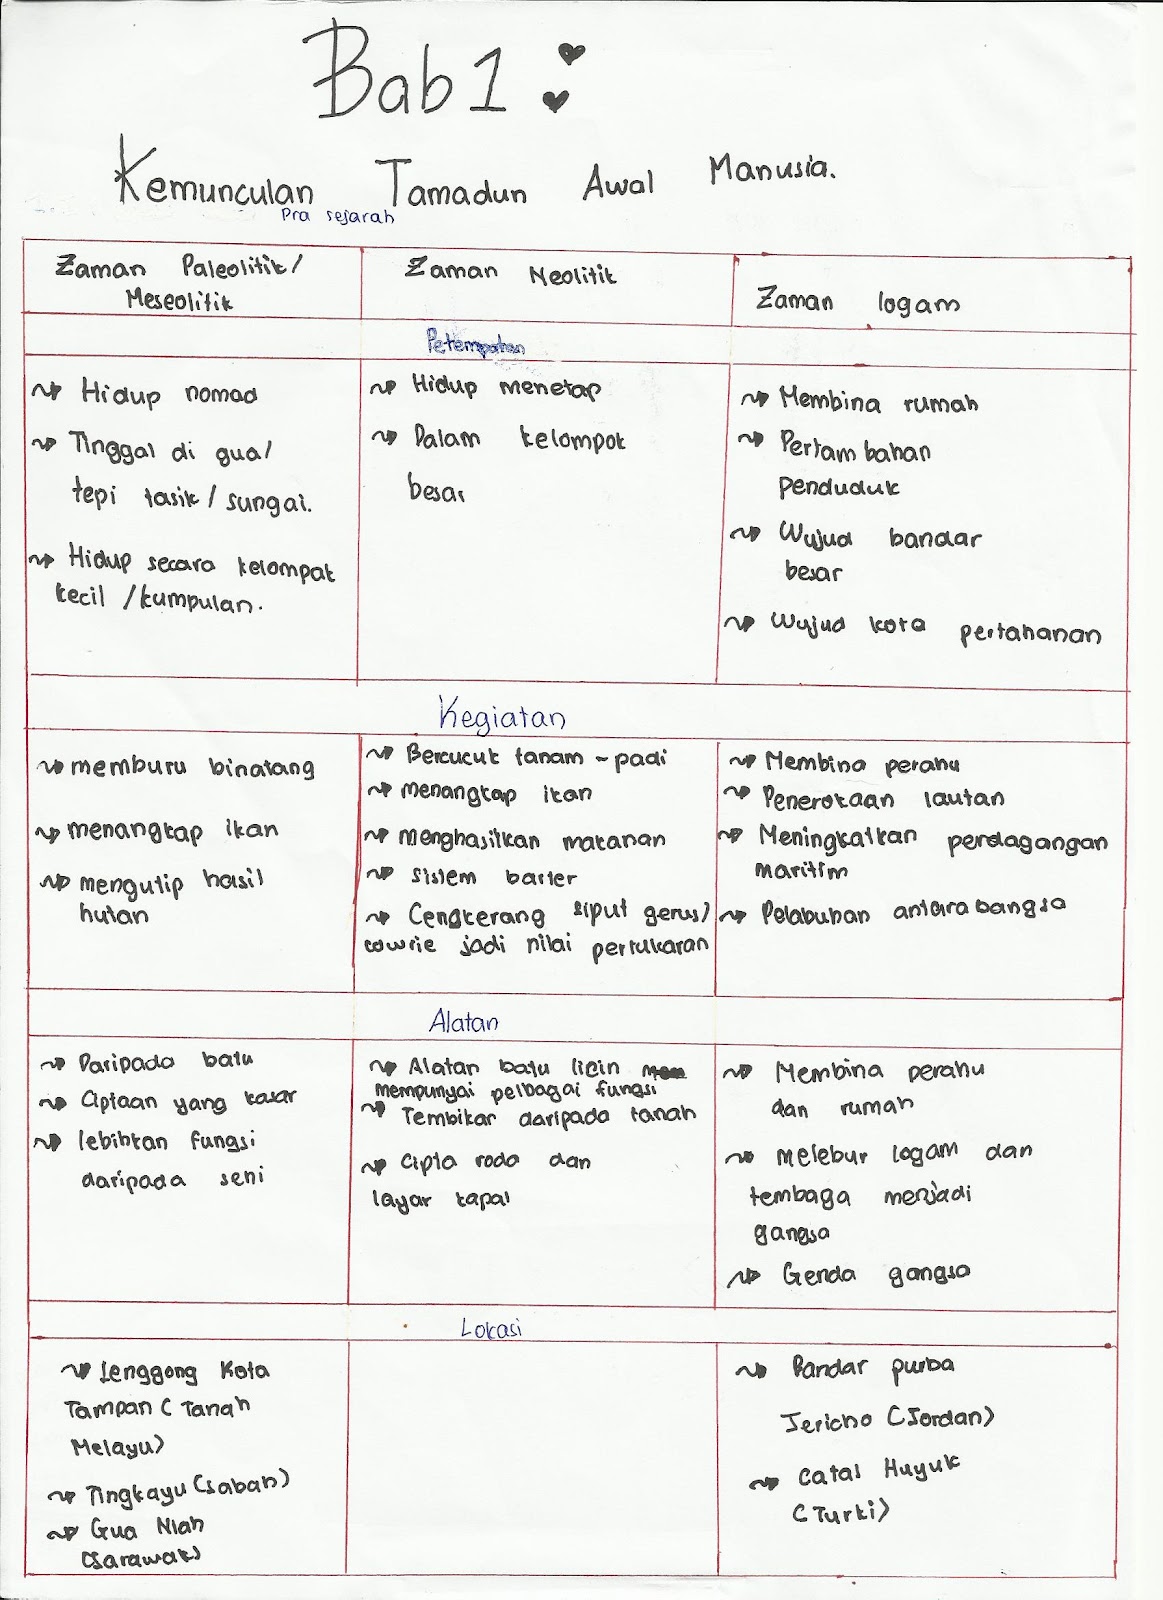 Bab 1
Kemunculan Tamadun Awal Manusia.
Pra sejarah
Zaman Paleolitik/
Meseolitik
Zaman Neolitik
Zaman logam
Petempatan
Hidup nomad
Tinggal di gua/
tepi tasik / sungai.
Hidup secara kelompak
kecil / kumpulan.
Hidup menetap
Dalam kelompok
besar
Membina rumah
Pertambahan
penduduk
Wujud bandar
besar
Wujud kota pertahanan
Kegiatan
memburu binatang
menangkap ikan
mengutip hasil
hutan
Bercucuk tanam - padi
menangkap ikan
menghasilkan makanan
sistem barter
Cengkerang siput gerus/
cowrie jadi nilai pertukaran
Membina perahu
Penerokaan lautan
Meningkatkan perdagangan
maritim
Pelabuhan antarabangsa
Alatan
Daripada batu
Ciptaan yang kasar
lebihkan fungsi
daripada seni
Alatan batu licin
mempunyai pelbagai fungsi
Tembikar daripada tanah
Cipta roda dan
layar kapal
Membina perahu
dan rumah
melebur logam dan
tembaga menjadi
gangsa
Genda gangsa
Lokasi
Lenggong Kota
Tampan (Tanah
Melayu)
Tingkayu (Sabah)
Gua Niah
(Sarawak)
Bandar purba
Jericho (Jordan)
Catal Huyuk
(Turki)